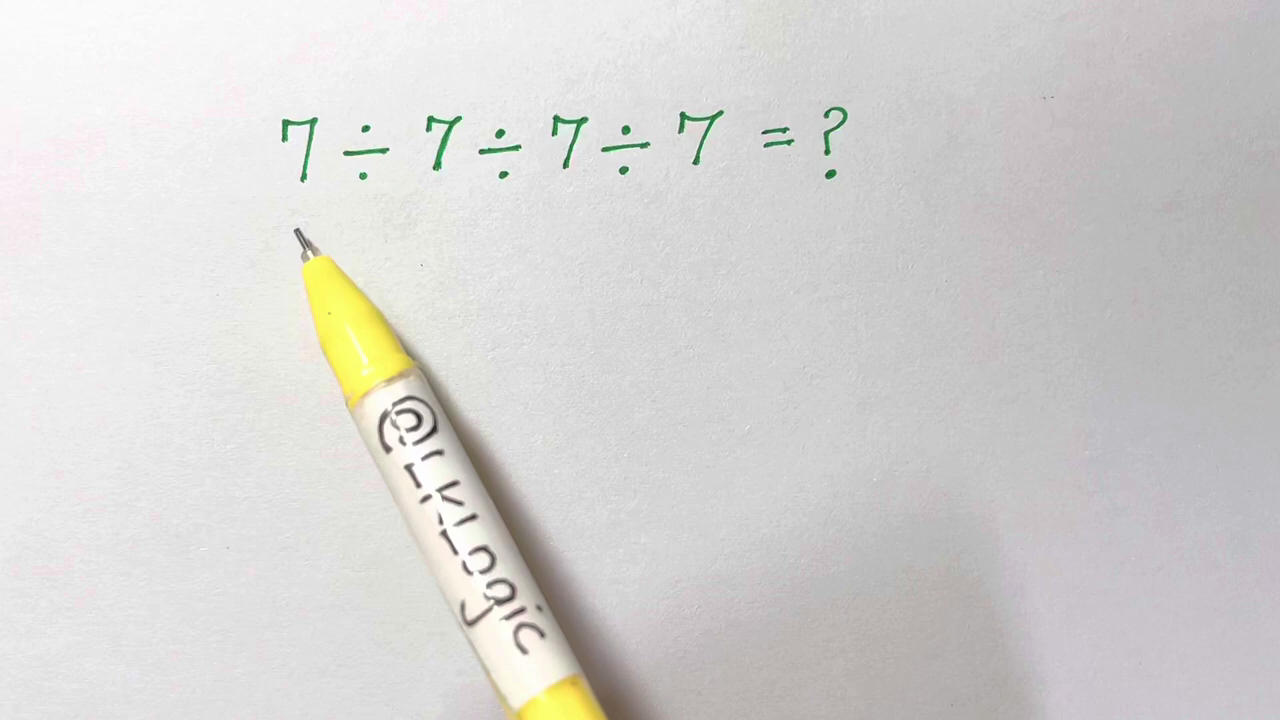 7 ÷ 7 ÷ 7 ÷ 7 = ?
@rkLogic